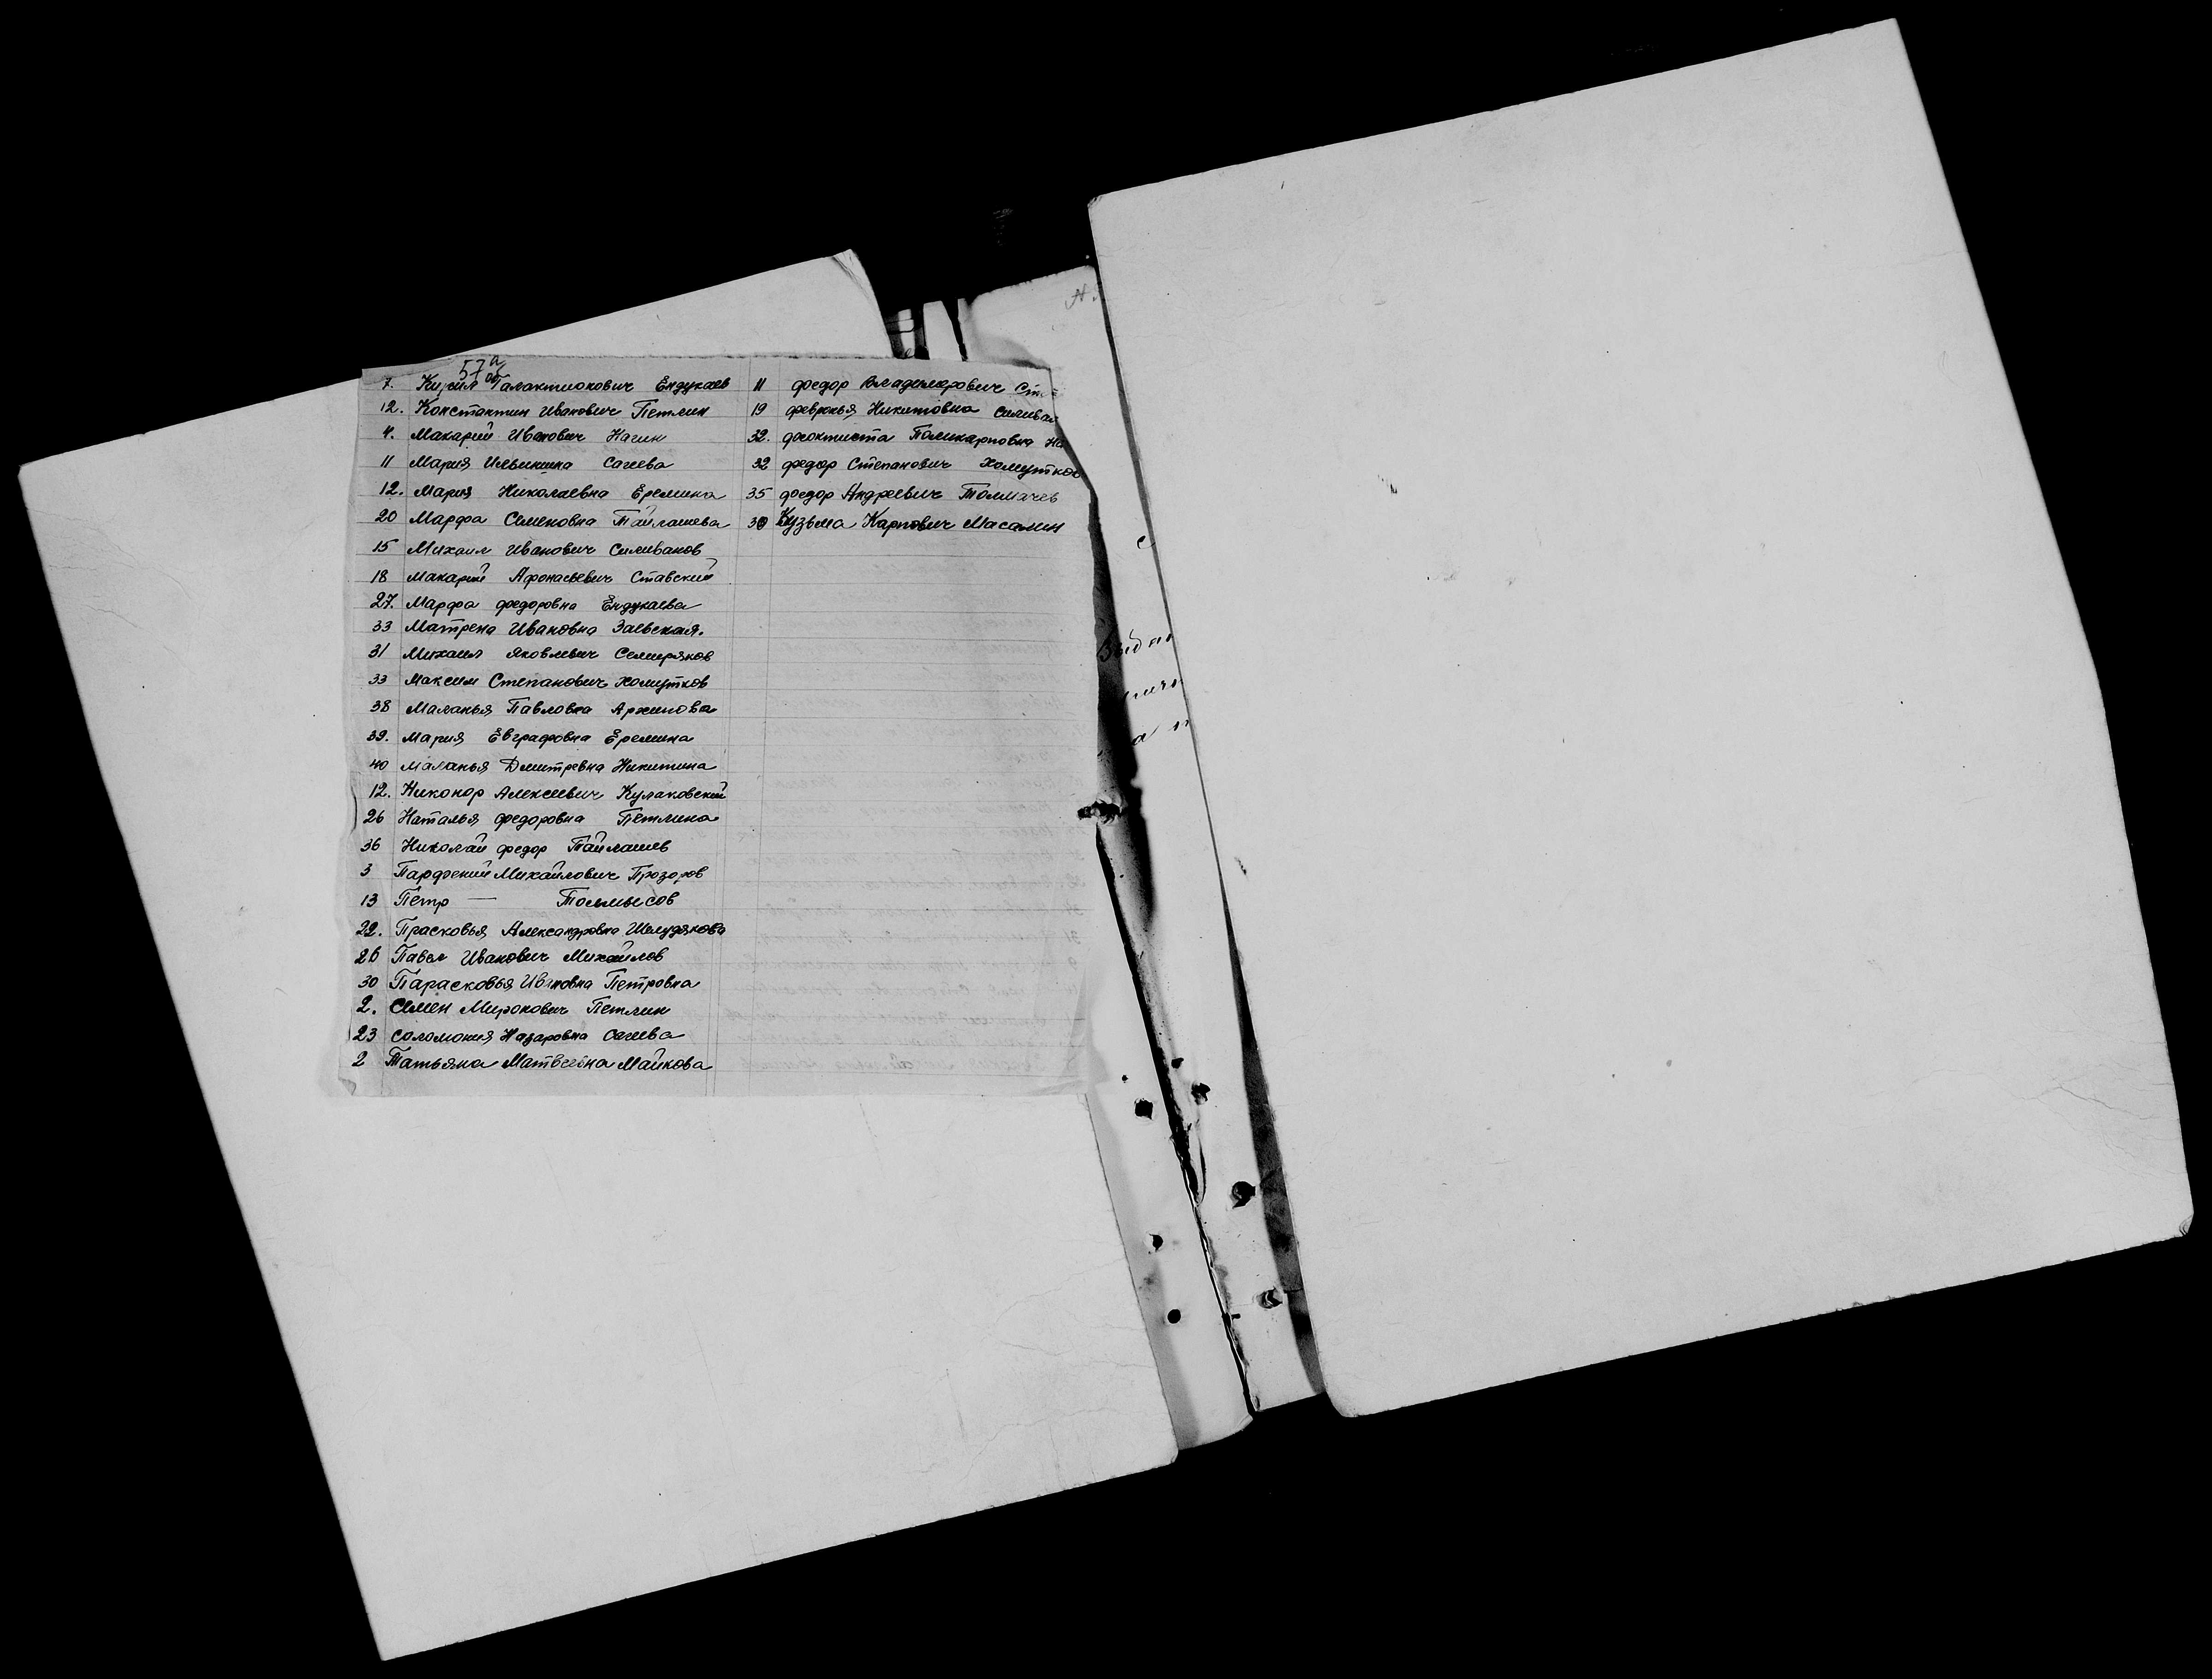 57а
об
7. Кирил Галактионович Ендукаев
12. Константин Иванович Петлин
4. Макарий Иванович Нагин
11 Мария Ильинишна Сагеева
12. Мария Николаевна Еремина
20 Марфа Семеновна Тайлашева
15 Михаил Иванович Силиванов
18 Макарий Афонасьевич Ставский
27. Марфа федоровна Ендукаева
33 Матрена Ивановна Заевская.
31 Михаил Яковлевич Семиряков
33 Максим Степанович Хомутков
38 Маланья Павловна Архипова
39. Мария Евграфовна Еремина
40 Маланья Дмитревна Никитина
12. Никонор Алексеевич Кулаковский
26 Наталья федоровна Петлина
36 Николай федор Тайлашев
3 Парфений Михайлович Прозоров
13 Петр — Толмысов
22. Прасковья Александровна Шелудякова
26 Павел Иванович Михайлов
30 Парасковья Ивановна Петровна
2. Семен Миронович Петлин
23 Соломония Назаровна Сагеева
2 Татьяна Матвеевна Майкова
11 федор Владимирович Ст
19 февронья Никитовна Силиван
32. феоктиста Поликарповна На
32 федор Степанович Хомутков
35 федор Андреевич Толмачев
30 Кузьма Карпович Масалин